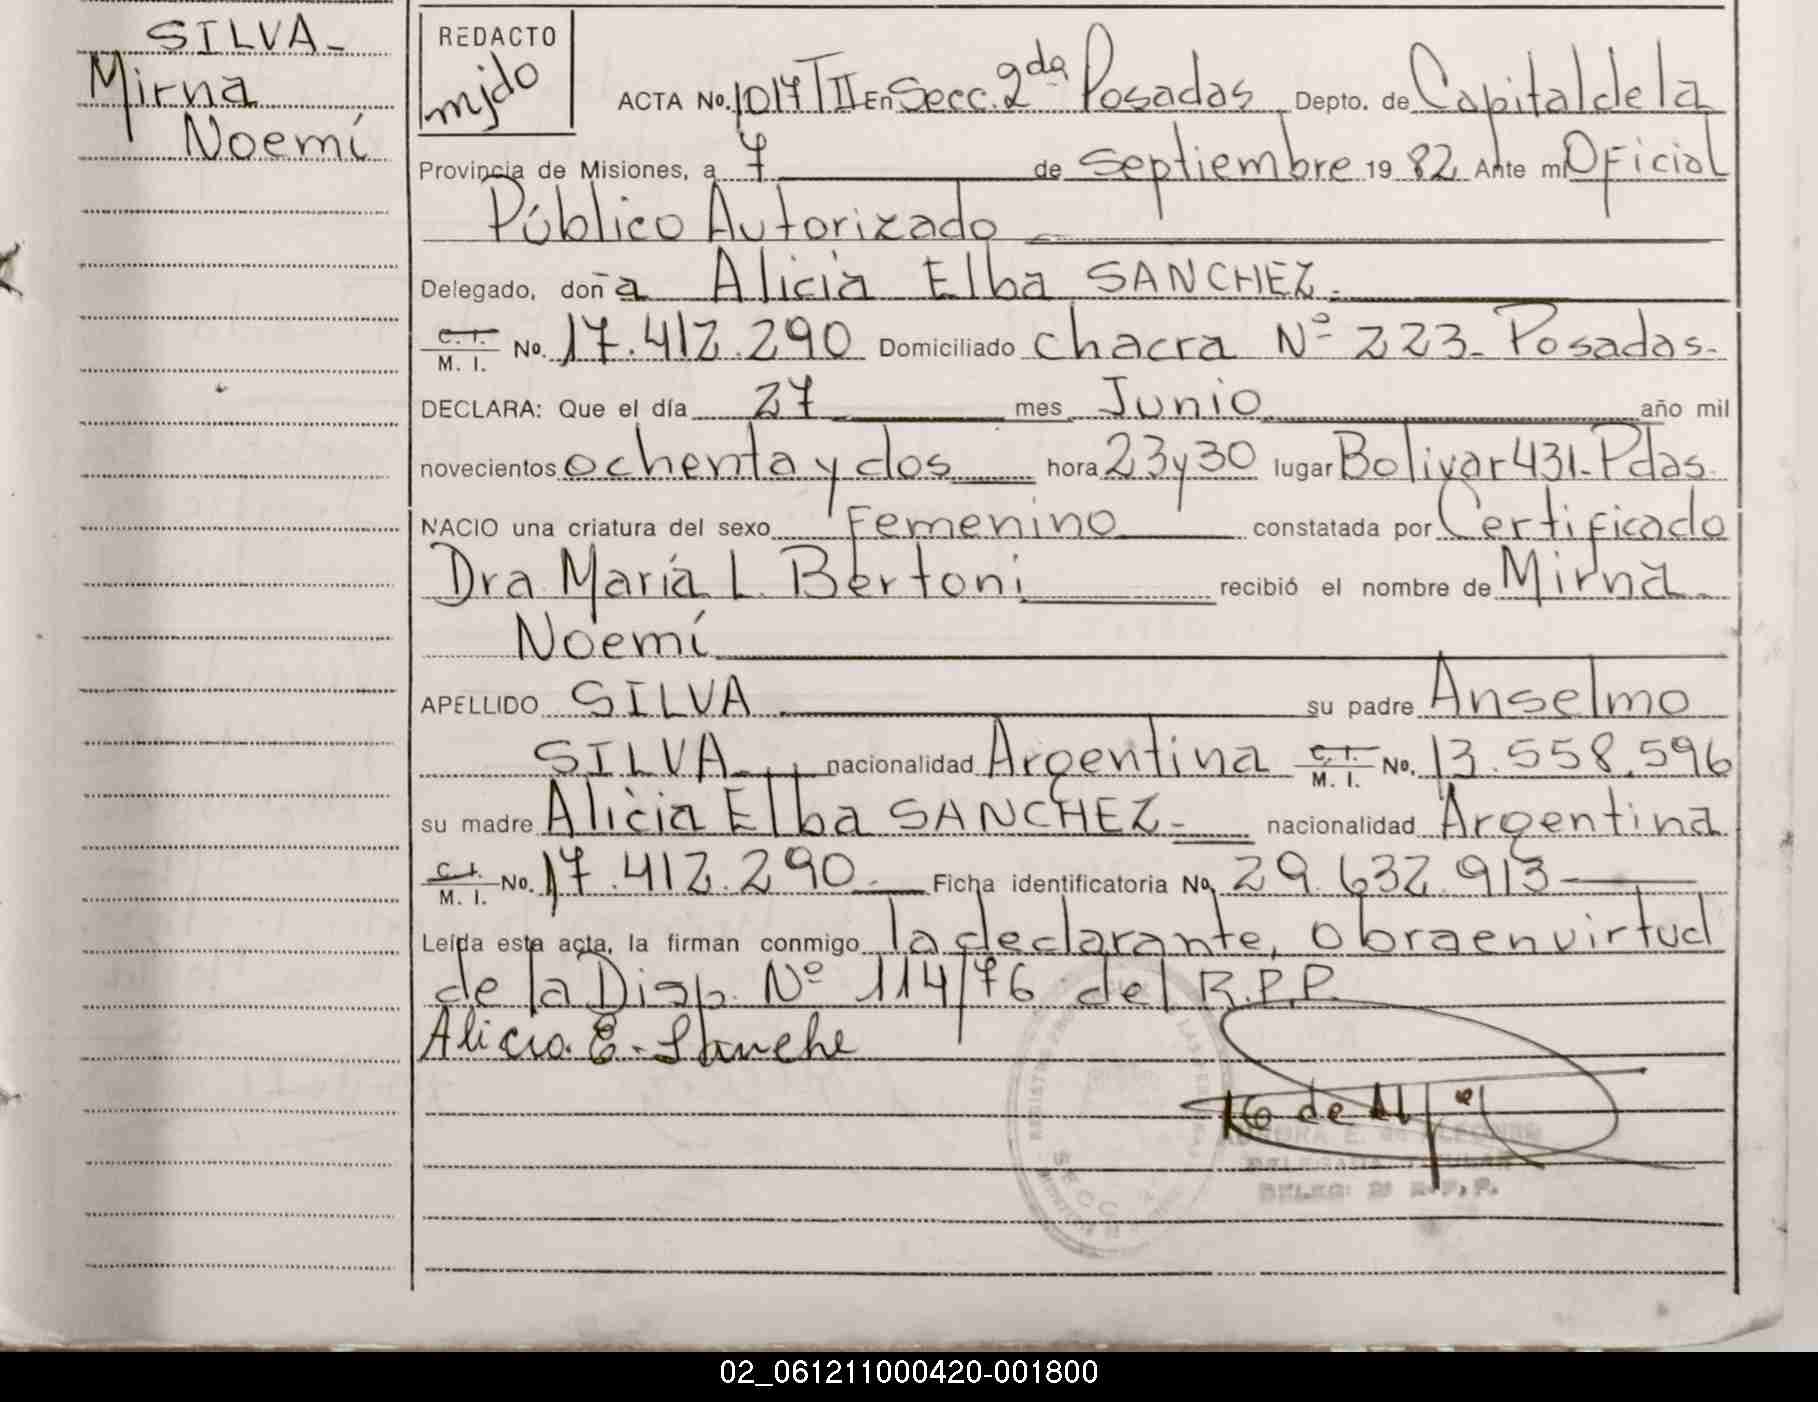 SILVA-
Mirna
Noemí
REDACTO
mjdo
ACTA No. 1017 TII En Secc. 2da Posadas Depto. de Capital de la
Provincia de Misiones, a 7 de Septiembre 19 82 Ante mí Oficial
Público Autorizado
Delegado, doña Alicia Elba SANCHEZ.
C. I. M. I. No. 17.412.290 Domiciliado chacra Nº 223- Posadas-
DECLARA: Que el día 27 mes Junio año mil
novecientos ochenta y dos hora 23 y 30 lugar Bolivar 431-Pdas.
NACIO una criatura del sexo Femenino constatada por Certificado
Dra María L. Bertoni recibió el nombre de Mirna
Noemí
APELLIDO SILVA su padre Anselmo
SILVA nacionalidad Argentina C. I. M. I. No. 13.558.596
su madre Alicia Elba SANCHEZ- nacionalidad Argentina
C. I. M. I. No. 17.412.290 Ficha identificatoria No. 29.632.913
Leída esta acta, la firman conmigo la declarante, obra en virtud
de la Disp. Nº 114/76 del R.P.P.
Alicia E. Sanche
SECC
02_061211000420-001800